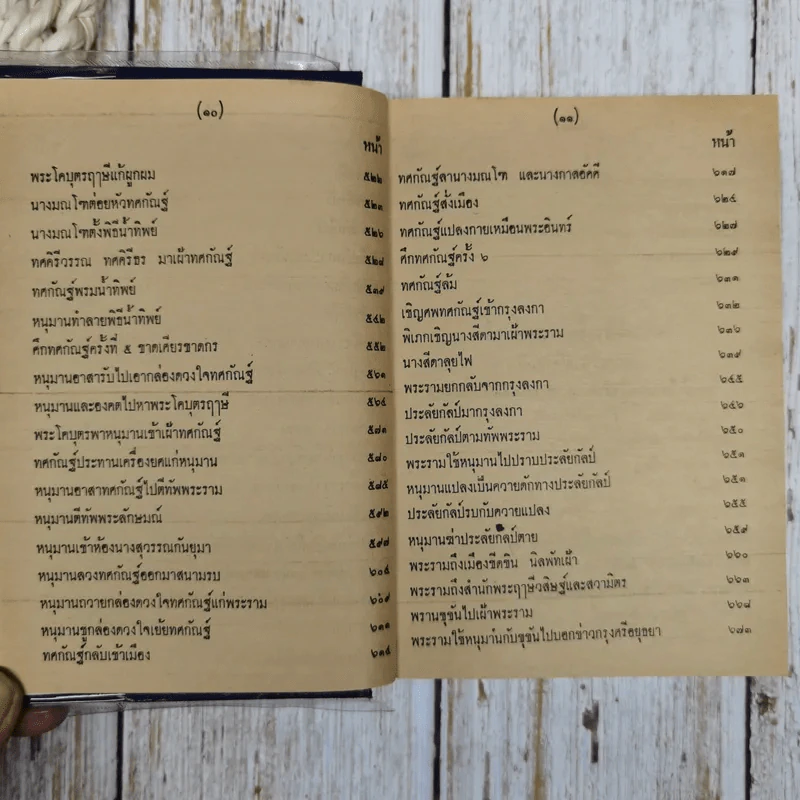 (๑๐)
หน้า
พระโคบุตรฤๅษีแก้ผูกผม ๕๒๒
นางมณโฑต่อยหัวทศกัณฐ์ ๕๒๓
นางมณโฑตั้งพิธีน้ำทิพย์ ๕๒๖
ทศคิรีวรรณ ทศคิรีธร มาเฝ้าทศกัณฐ์ ๕๒๘
ทศกัณฐ์พรมน้ำทิพย์ ๕๓๙
หนุมานทำลายพิธีน้ำทิพย์ ๕๔๒
ศึกทศกัณฐ์ครั้งที่ ๕ ขาดเศียรขาดกร ๕๕๒
หนุมานอาสารับไปเอากล่องดวงใจทศกัณฐ์ ๕๖๑
หนุมานและองคตไปหาพระโคบุตรฤๅษี ๕๖๔
พระโคบุตรพาหนุมานเข้าเฝ้าทศกัณฐ์ ๕๗๑
ทศกัณฐ์ประทานเครื่องยศแก่หนุมาน ๕๘๐
หนุมานอาสาทศกัณฐ์ไปตีทัพพระราม ๕๘๕
หนุมานตีทัพพระลักษมณ์ ๕๙๒
หนุมานเข้าห้องนางสุวรรณกันยุมา ๕๙๗
หนุมานลวงทศกัณฐ์ออกมาสนามรบ ๖๐๔
หนุมานถวายกล่องดวงใจทศกัณฐ์แก่พระราม ๖๐๙
หนุมานชูกล่องดวงใจเย้ยทศกัณฐ์ ๖๑๑
ทศกัณฐ์กลับเข้าเมือง ๖๑๔
(๑๑)
หน้า
ทศกัณฐ์ลานางมณโฑ และนางกาลอัคคี ๖๑๗
ทศกัณฐ์สั่งเมือง ๖๒๔
ทศกัณฐ์แปลงกายเหมือนพระอินทร์ ๖๒๗
ศึกทศกัณฐ์ครั้ง ๖ ๖๒๙
ทศกัณฐ์ล้ม ๖๓๑
เชิญศพทศกัณฐ์เข้ากรุงลงกา ๖๓๒
พิเภกเชิญนางสีดามาเฝ้าพระราม ๖๓๖
นางสีดาลุยไฟ ๖๓๙
พระรามยกกลับจากกรุงลงกา ๖๔๕
ประลัยกัลป์มากรุงลงกา ๖๔๖
ประลัยกัลป์ตามทัพพระราม ๖๕๐
พระรามใช้หนุมานไปปราบประลัยกัลป์ ๖๕๑
หนุมานแปลงเป็นควายดักทางประลัยกัลป์ ๖๕๑
ประลัยกัลป์รบกับควายแปลง ๖๕๕
หนุมานฆ่าประลัยกัลป์ตาย ๖๕๙
พระรามถึงเมืองขีดขิน นิลพัทเฝ้า ๖๖๐
พระรามถึงสำนักพระฤๅษีวสิษฐ์และสวามิตร ๖๖๓
พรานขุขันไปเฝ้าพระราม ๖๖๘
พระรามใช้หนุมานกับขุขันไปบอกข่าวกรุงศรีอยุธยา ๖๗๑